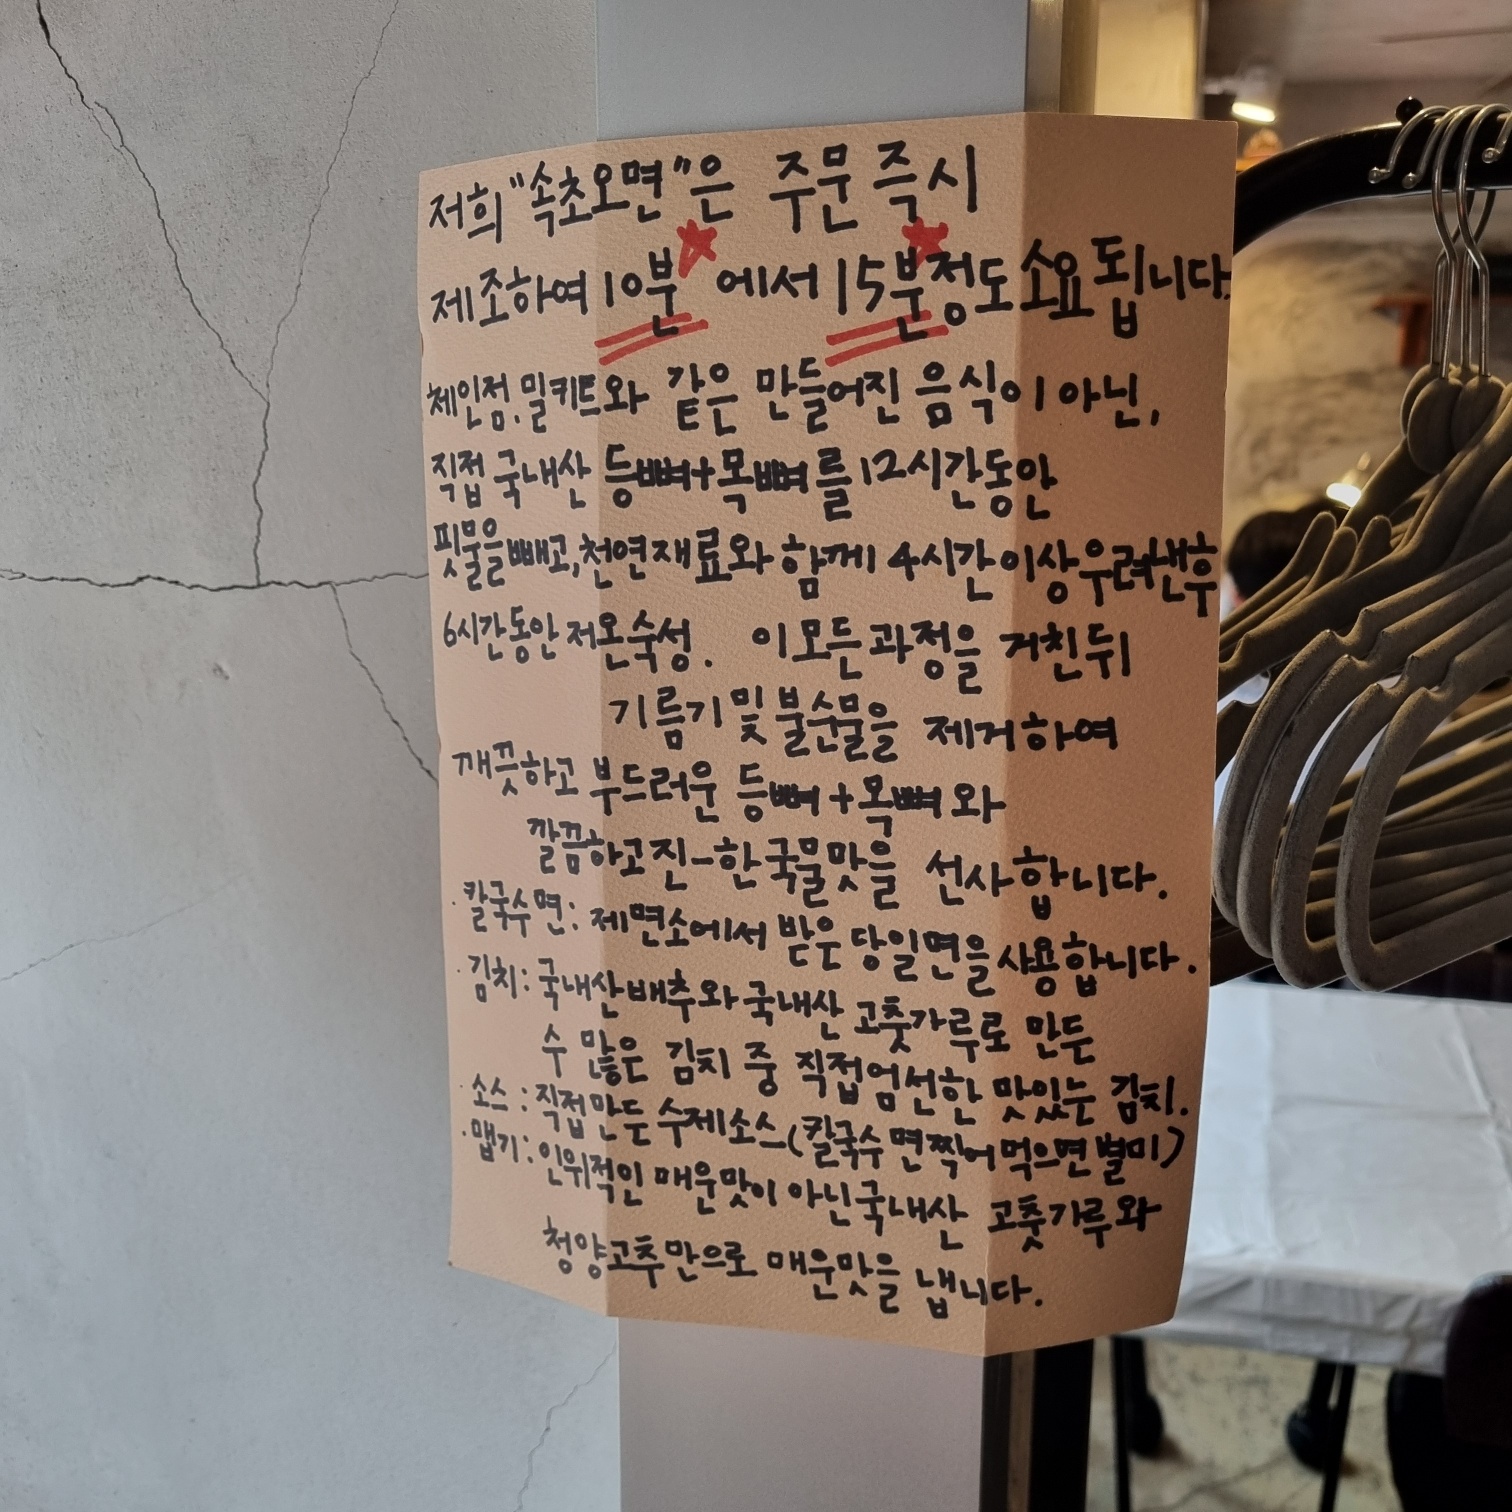 저희 "속초오면"은 주문 즉시
제조하여 10분 에서 15분정도 소요 됩니다.
체인점, 밀키트와 같은 만들어진 음식이 아닌,
직접 국내산 등뼈+목뼈를 12시간동안
핏물을 빼고, 천연재료와 함께 4시간 이상 우려낸후
6시간동안 저온숙성. 이 모든 과정을 거친 뒤
기름기 및 불순물을 제거하여
깨끗하고 부드러운 등뼈+목뼈와
깔끔하고 진-한 국물맛을 선사합니다.
·칼국수면: 제면소에서 받은 당일면을 사용합니다.
·김치: 국내산 배추와 국내산 고춧가루로 만든
수 많은 김치 중 직접 엄선한 맛있는 김치.
·소스: 직접만든 수제소스(칼국수 면 찍어 먹으면 별미)
·맵기: 인위적인 매운맛이 아닌 국내산 고춧가루와
청양고추만으로 매운맛을 냅니다.